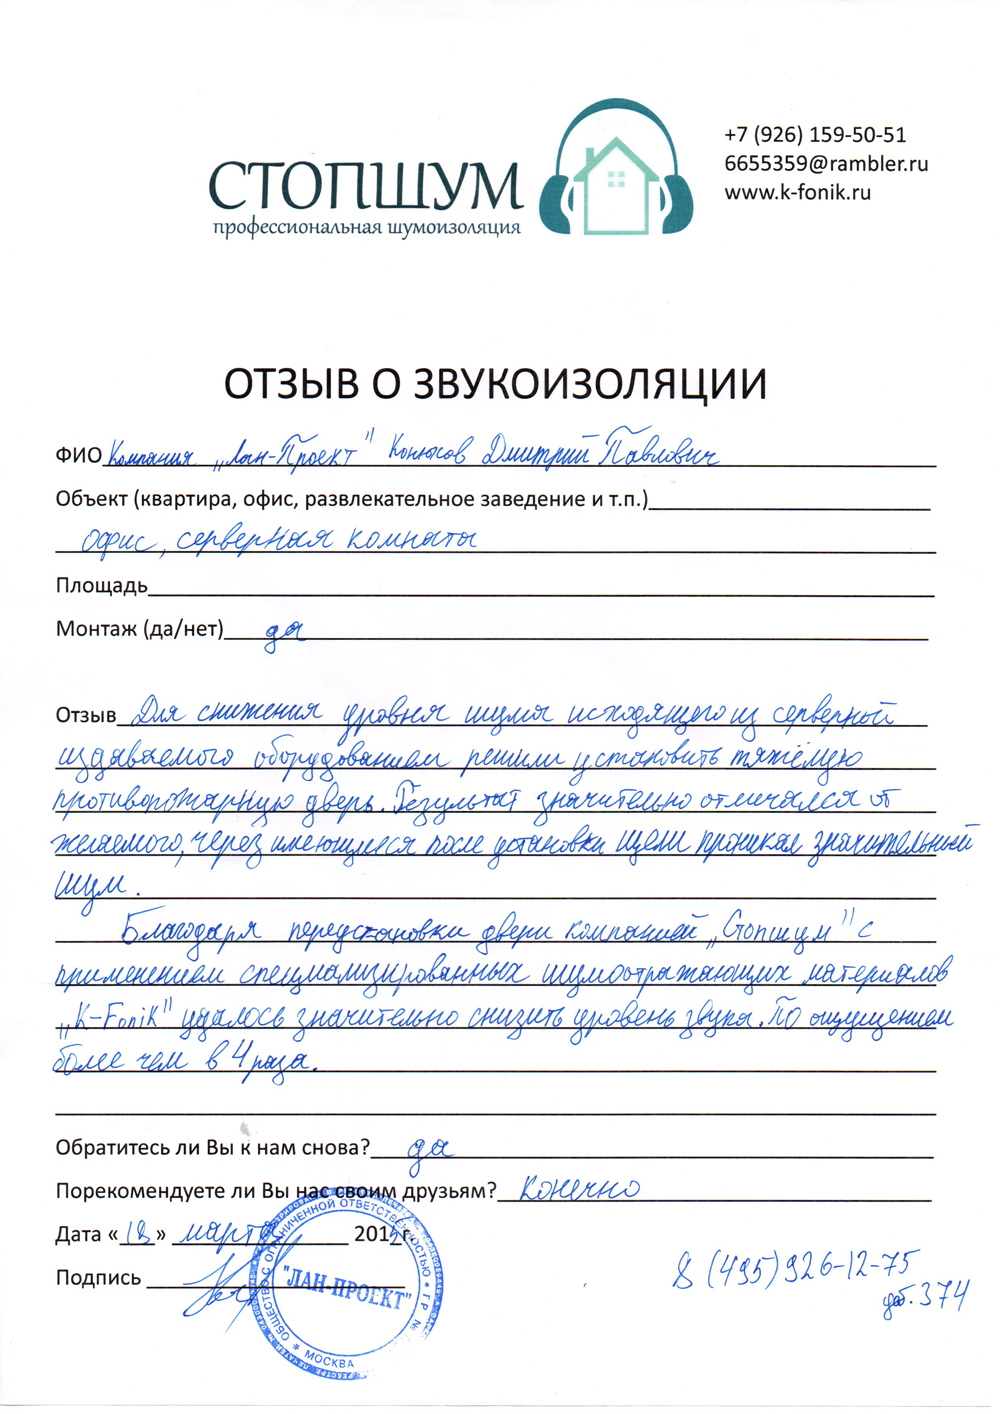 СТОПШУМ
профессиональная шумоизоляция
+7 (926) 159-50-51
6655359@rambler.ru
www.k-fonik.ru
ОТЗЫВ О ЗВУКОИЗОЛЯЦИИ
ФИО Компания „Лан-Проект" Конюсов Дмитрий Павлович
Объект (квартира, офис, развлекательное заведение и т.п.)
офис, серверная комната
Площадь
Монтаж (да/нет) да
Отзыв Для снижения уровня шума исходящего из серверной
издаваемого оборудованием решили установить тяжёлую
противопожарную дверь. Результат значительно отличался от
желаемого, через имеющиеся после установки щели проникал значительный
шум.
Благодаря перестановки двери компанией „Стопшум" с
применением специализированных шумоотражающих материалов
„K-Fonik" удалось значительно снизить уровень звука. По ощущениям
более чем в 4 раза.
Обратитесь ли Вы к нам снова? да
Порекомендуете ли Вы нас своим друзьям? конечно
Дата «18» марта 2015г.
Подпись
ОБЩЕСТВО С ОГРАНИЧЕННОЙ ОТВЕТСТВЕННОСТЬЮ * Г.Р. №
"ЛАН-ПРОЕКТ"
* МОСКВА
8 (495) 926-12-75
доб. 374